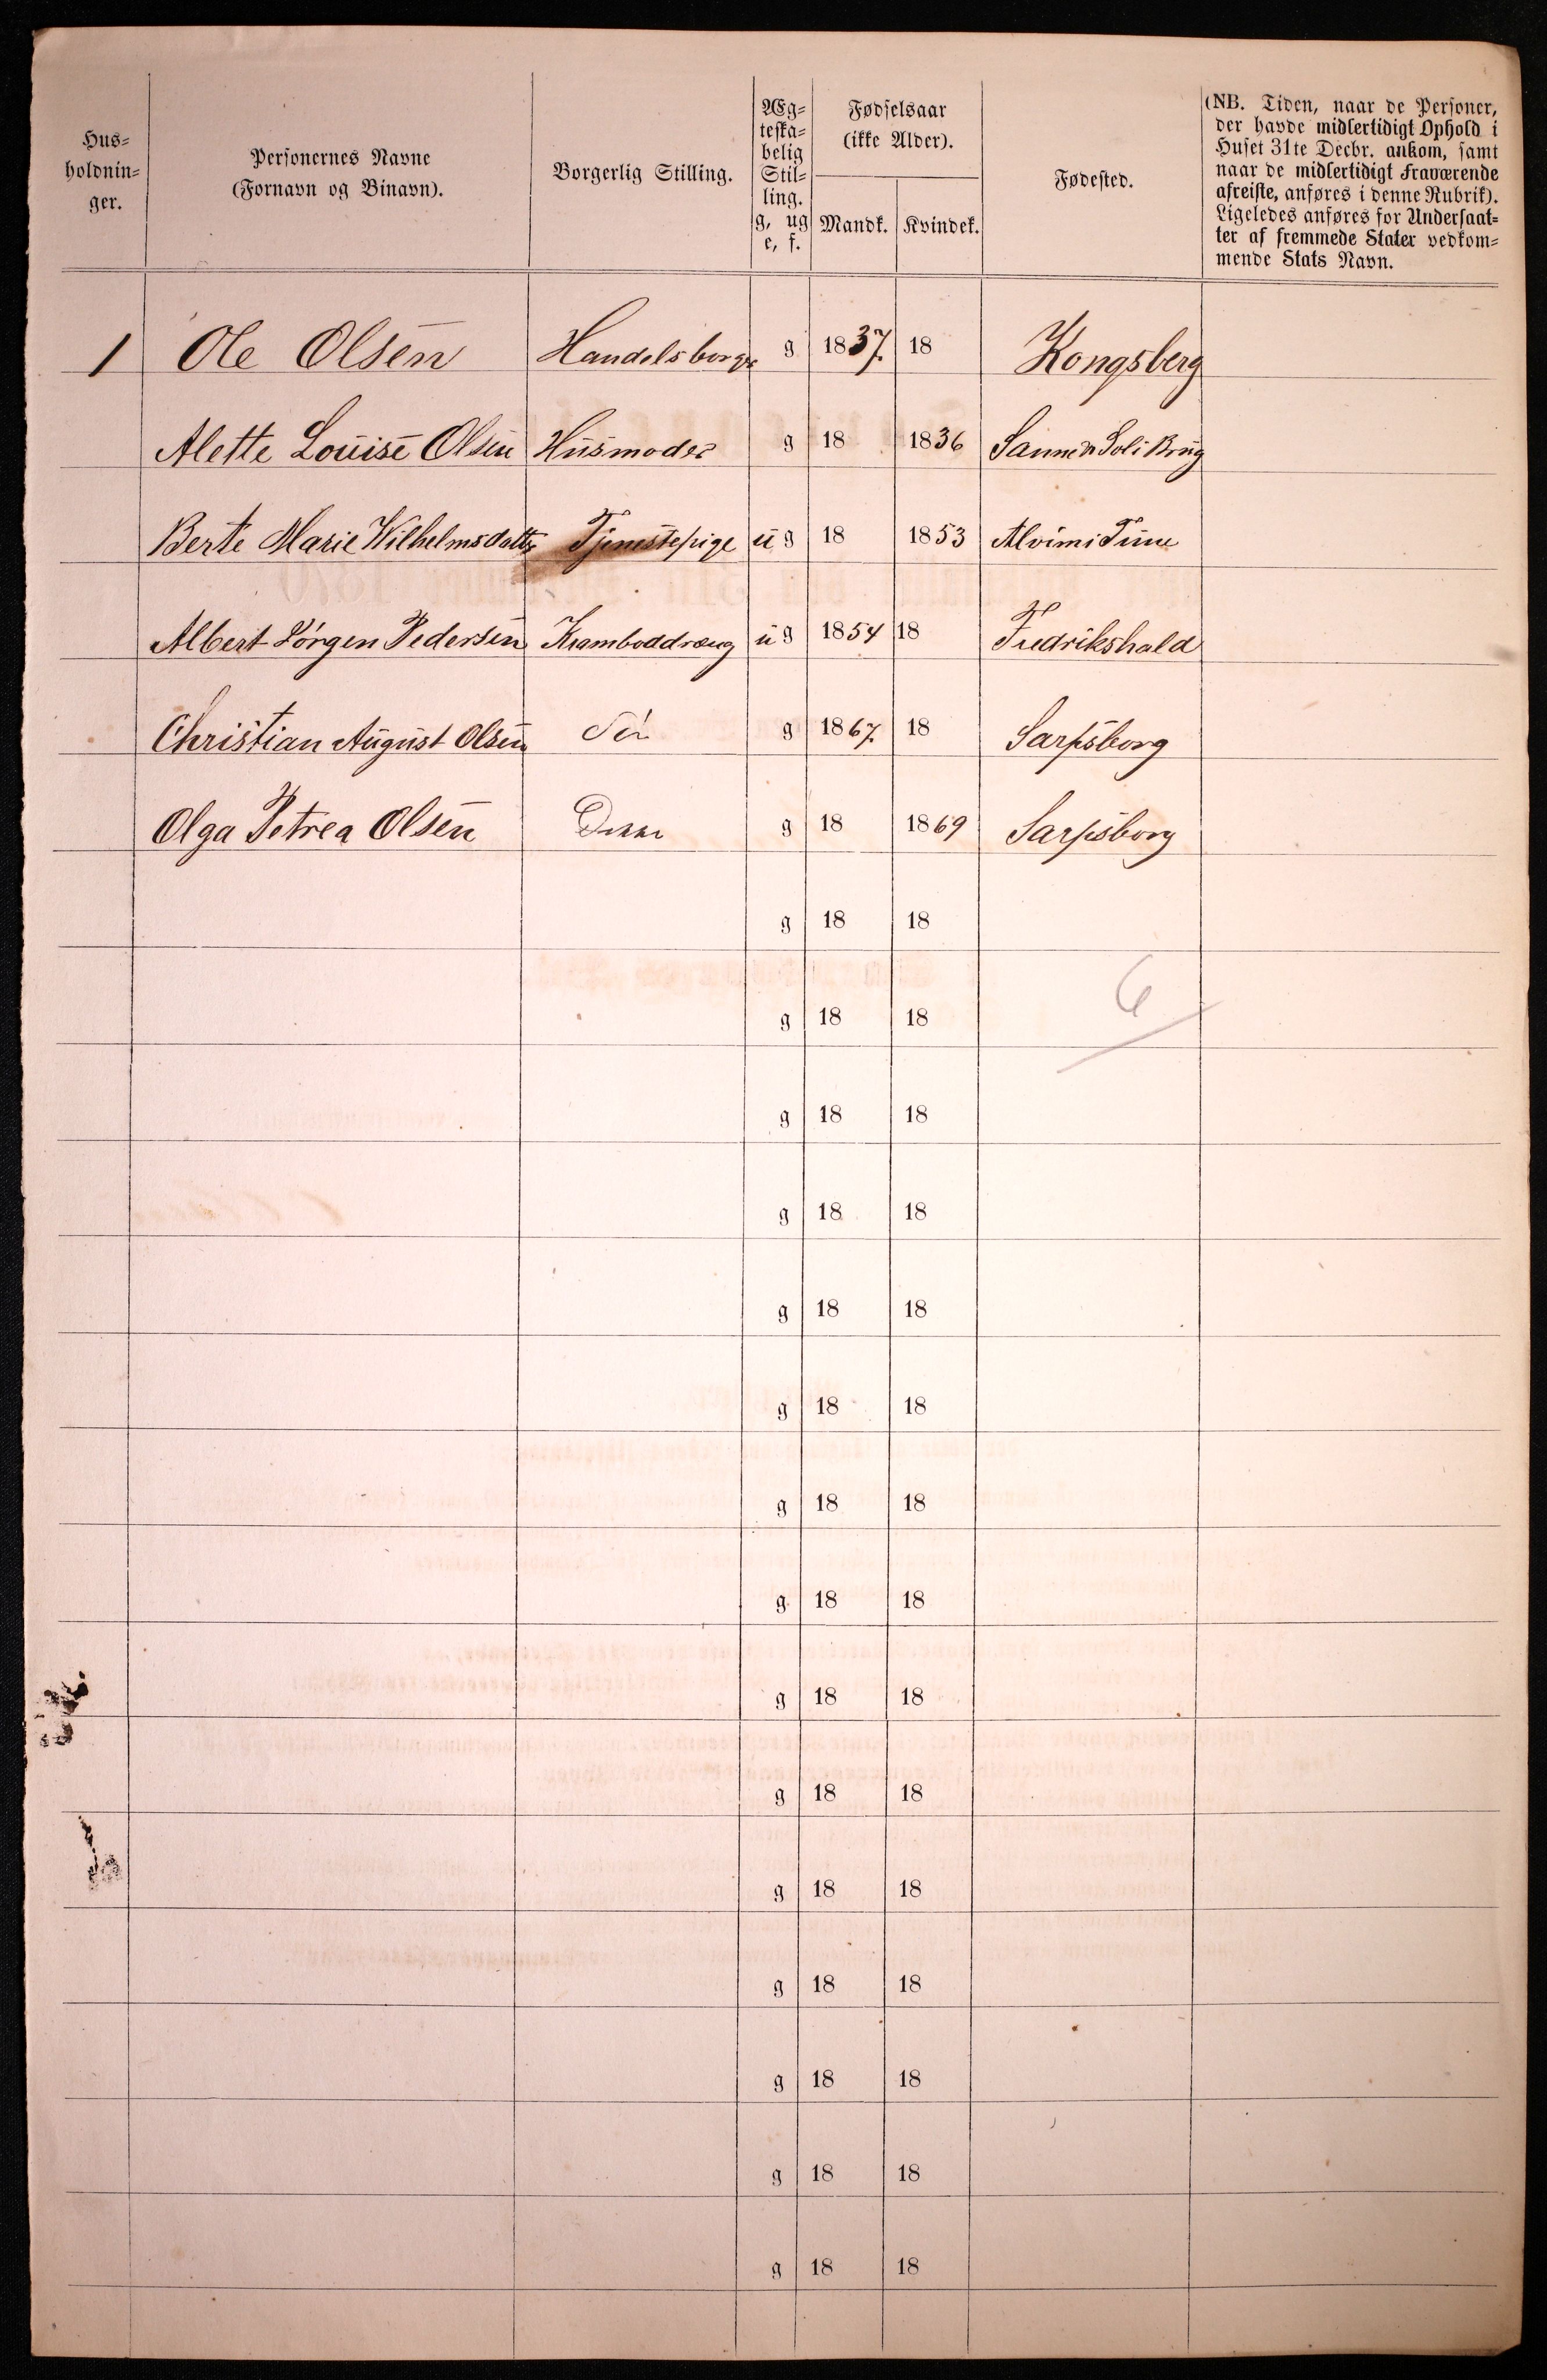 Hus-
holdnin-
ger.
Personernes Navne
(Fornavn og Binavn).
Borgerlig Stilling.
Æg-
teska-
belig
Stil-
ling.
g, ug
e, f.
Fødselsaar
(ikke Alder).
Mandk. Kvindek.
Fødested.
(NB. Tiden, naar de Personer,
der havde midlertidigt Ophold i
Huset 31te Decbr. ankom, samt
naar de midlertidigt Fraværende
afreiste, anføres i denne Rubrik).
Ligeledes anføres for Undersaat-
ter af fremmede Stater vedkom-
mende Stats Navn.
1 Ole Olsen Handelsborger g 1837. 18 Kongsberg
Alette Louise Olsen Husmoder g 18 1836 Soli Brug
Berte Marie Wilhelmsdatter Tjenestepige ug 18 1853 Alvim i Tune
Albert Jörgen Pedersen Kramboddreng ug 1854 18 Fredrikshald
Christian August Olsen Sön g 1867. 18 Sarpsborg
Olga Petrea Olsen g 18 1869 Sarpsborg
g 18 18
6
g 18 18
g 18 18
g 18 18
g 18 18
g 18 18
g 18 18
g 18 18
g 18 18
g 18 18
g 18 18
g 18 18
g 18 18
g 18 18
g 18 18